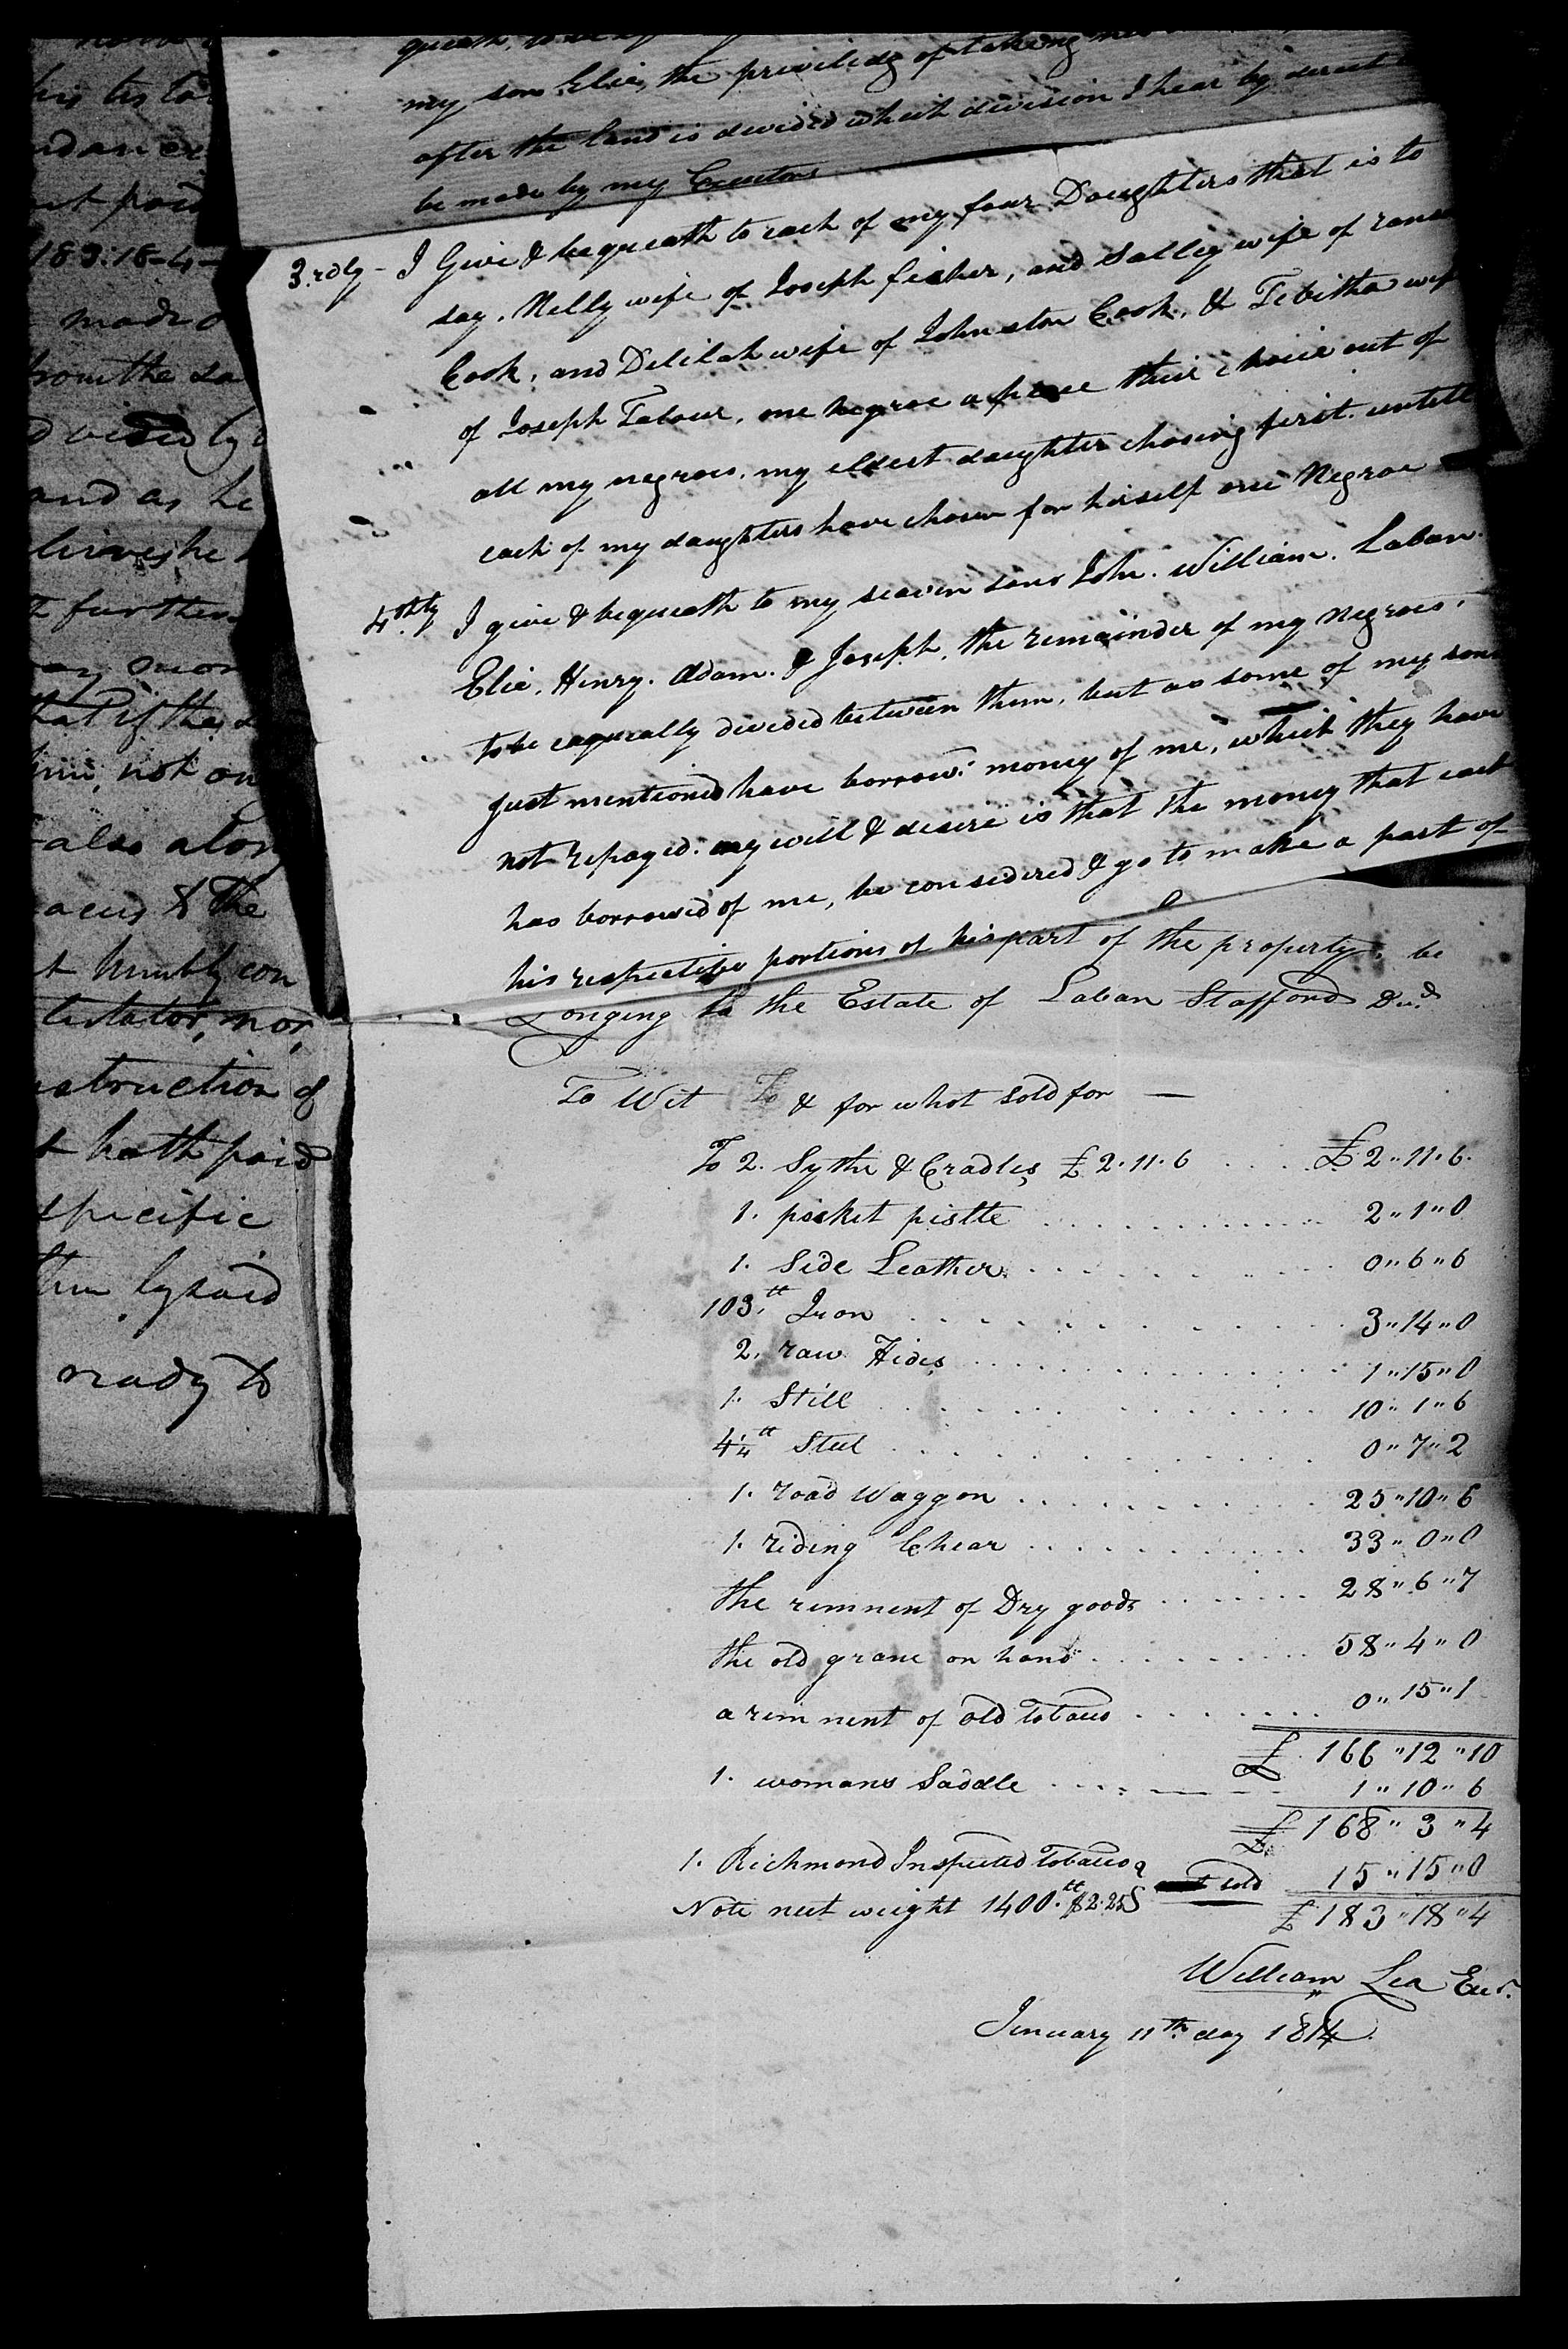 his
183:18-4-
made
from the
and as he
further
that if the
him, not on
also alon
the
t humbly con
testator, nor,
nstruction of
t hath paid
specific
them by said
ready to
my son Elie, the priviledg of taking his
after the land is divided which division I hear by direct
be made by my Executors
3.rdly - I Give & bequeath to each of my four Daughters that is to
say, Nelly wife of Joseph fisher, and Salley wife of
Cook, and Delilah wife of Johnston Cook, & Tebitha wife
of Joseph Tabour, one negroe apeace thire choice out of
all my negroes, my eldest daughter chosing first. untill
each of my daughters have chosen for hirself one Negroe
4.thly I give & bequeath to my seaven sons John. William. Laban.
Elie. Henry. Adam. & Joseph, the remainder of my negroes.
to be equeally divided between them, but as some of my sons
just mentioned have borrow.d money of me, which they have
not repayed. my will & desire is that the money that each
has borrowed of me, be considered & go to make a part of
his respective portions of his part of the property, be
Longing to the Estate of Laban Stafford Dec.d
To Wit To & for whot sold for —
To 2. Sythe & Cradles £2.11.6 . . . £2"11"6.
1. pocket pistle . . . 2"1"0
1. Side Leather . . . 0"6"6
103.tt Iron . . . 3"14"0
2. raw Hides . . . 1"15"0
1. Still . . . 10"1"6
4¼tt Steel . . . 0"7"2
1. road Waggon . . . 25"10"6
1. riding Chear . . . 33"0"0
the remnent of Dry goods . . . 28"6"7
the old grane on hand . . . 58"4"0
a remnent of old tobacco . . . 0"15"1
£ 166"12"10
1. womans Saddle . . . 1"10"6
£ 168"3"4
1. Richmond Inspected tobacco
sold 15"15"0
Note neet weight 1400.tt $2.25
£ 183"18"4
William Lea Exr.
Jenuary 11th day 1814